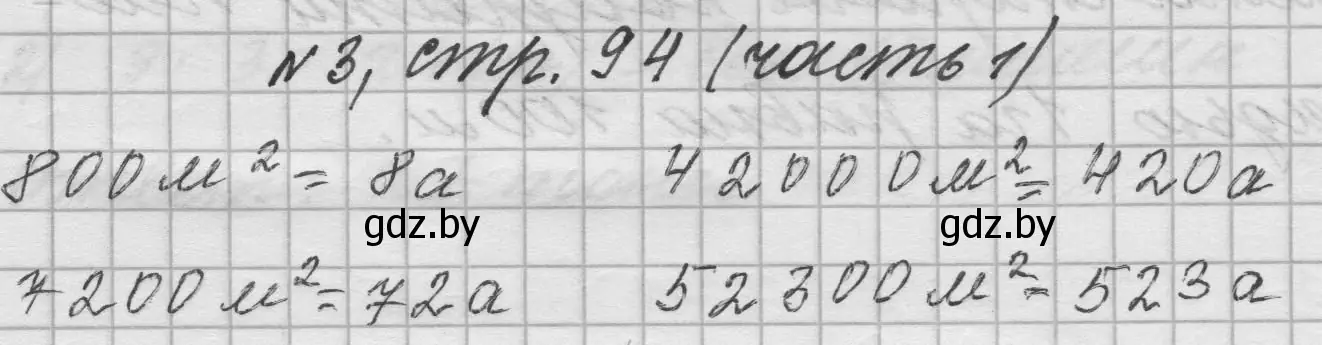 N 3, стр. 94 (часть 1)
800 м² = 8а 42000 м² = 420а
gdz.by gdz.by
7200 м² = 72а 52300 м² = 523а